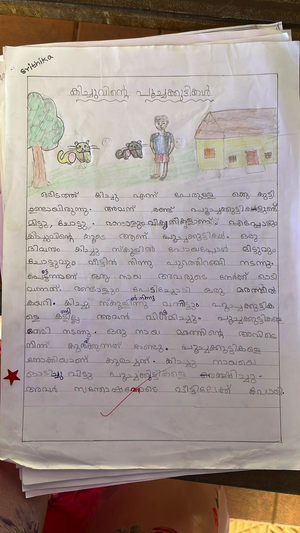 srithika
കിച്ചുവിന്റെ പൂച്ചക്കുട്ടികൾ
ഒരിടത്ത് കിച്ചു എന്ന് പേരുള്ള ഒരു കുട്ടി
ഉണ്ടായിരുന്നു. അവന് രണ്ട് പൂച്ചക്കുട്ടികളുണ്ട്
മിട്ടു, ചോട്ടു.
കിച്ചുവിന്റെ കൂടെ ആണ് പൂച്ചക്കുട്ടികൾ. ഒരു
ദിവസം കിച്ചു സ്കൂളിൽ പോയപ്പോൾ മിട്ടുവും
ചോട്ടുവും വീട്ടിൽ നിന്നു പുറത്തിറങ്ങി നടന്നു.
പെട്ടെന്നാണ് ഒരു നായ അവരുടെ നേർക്ക് ഓടി
വന്നത്. രണ്ടാളും പേടിച്ചോടി ഒരു മരത്തിൽ
കയറി. കിച്ചു സ്കൂളിൽ നിന്നും വന്നിട്ടും പൂച്ചക്കുട്ടിക
ളെ കണ്ടില്ല അവൻ വിഷമിച്ചു. പൂച്ചക്കുട്ടികളെ
തേടി നടന്നു. ഒരു നായ മരത്തിന്റെ അടിയിൽ
നിന്ന് കുരക്കുന്നത് കണ്ടു. പൂച്ചക്കുട്ടികളെ
നോക്കിയാണ് കുരച്ചത്. കിച്ചു നായയെ
ഓടിച്ചു വിട്ടു പൂച്ചക്കുട്ടികളെ രക്ഷിച്ചു.
അവർ സന്തോഷത്തോടെ വീട്ടിലേക്ക് പോയി.